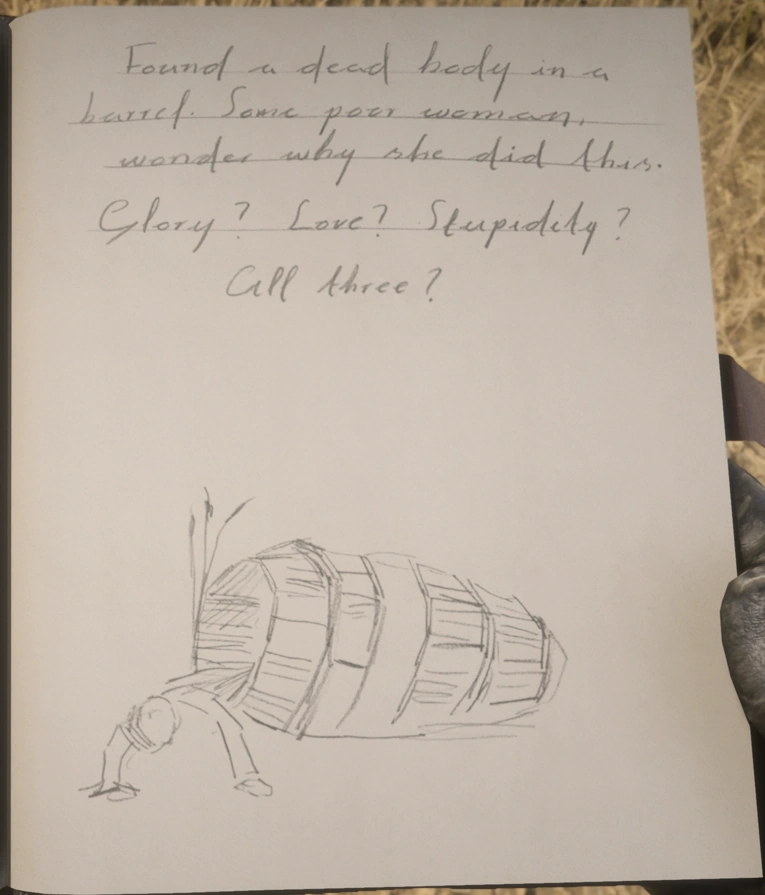 Found a dead body in a
barrel. Some poor woman,
wonder why she did this.
Glory? Love? Stupidity?
All three?